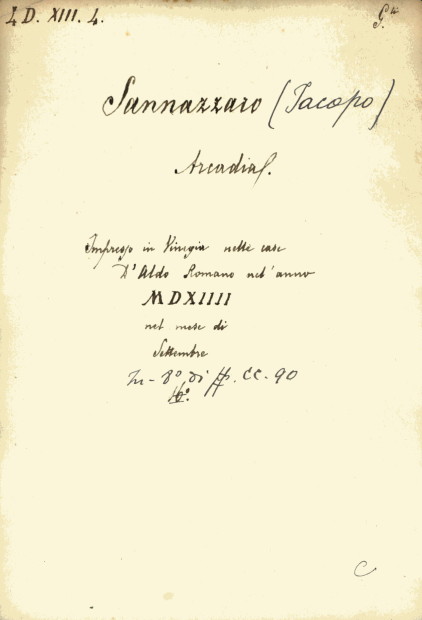 4 D. XIII. 4.
Sannazzaro (Jacopo)
Arcadia.
Impresso in Vinegia nelle case
D' Aldo Romano nel' anno
MDXIIII
nel mese di
Settembre
In-8º di ff. CC. 90
16º.
C